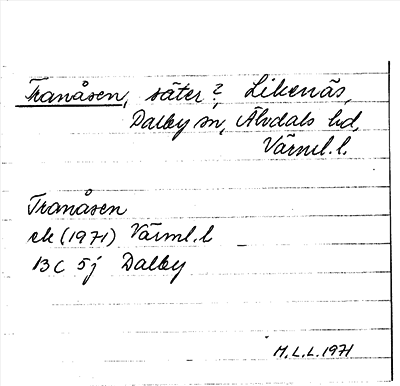 Tranåsen, säter?, Likenäs,
Dalby sn, Älvdals hd,
Värml. l.
Tranåsen
ek (1971) Värml. l
13 C 5j Dalby
M.L.L. 1971